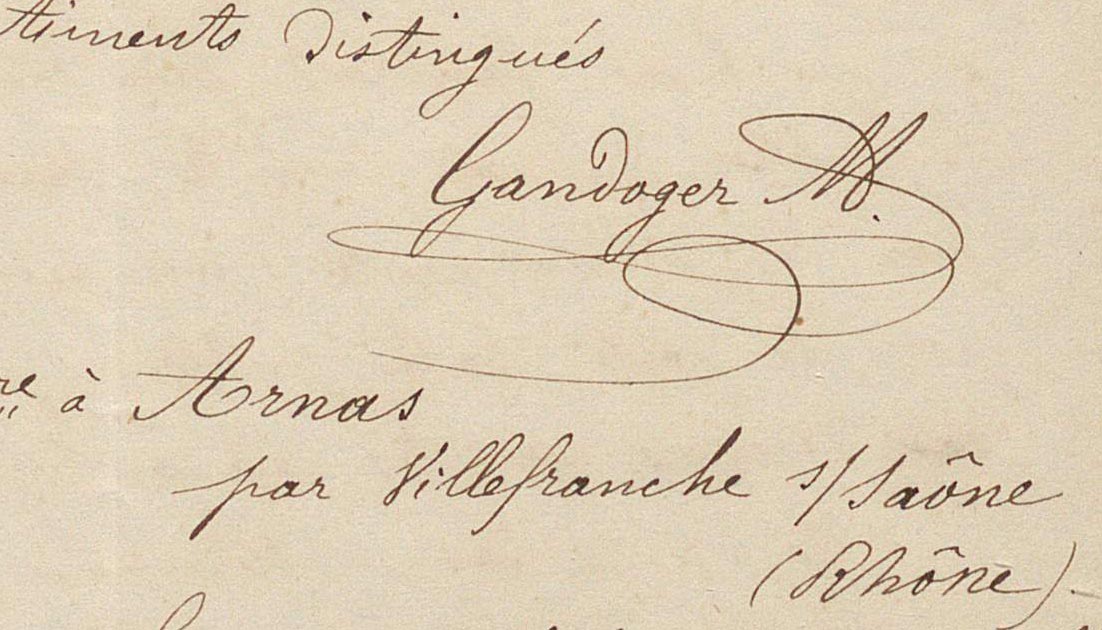 timents distingués
Gandoger M.
re à Arnas
par Villefranche s/Saône
(Rhône).